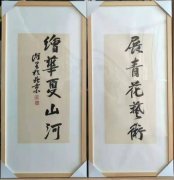 展青花藝術
繪華夏山河